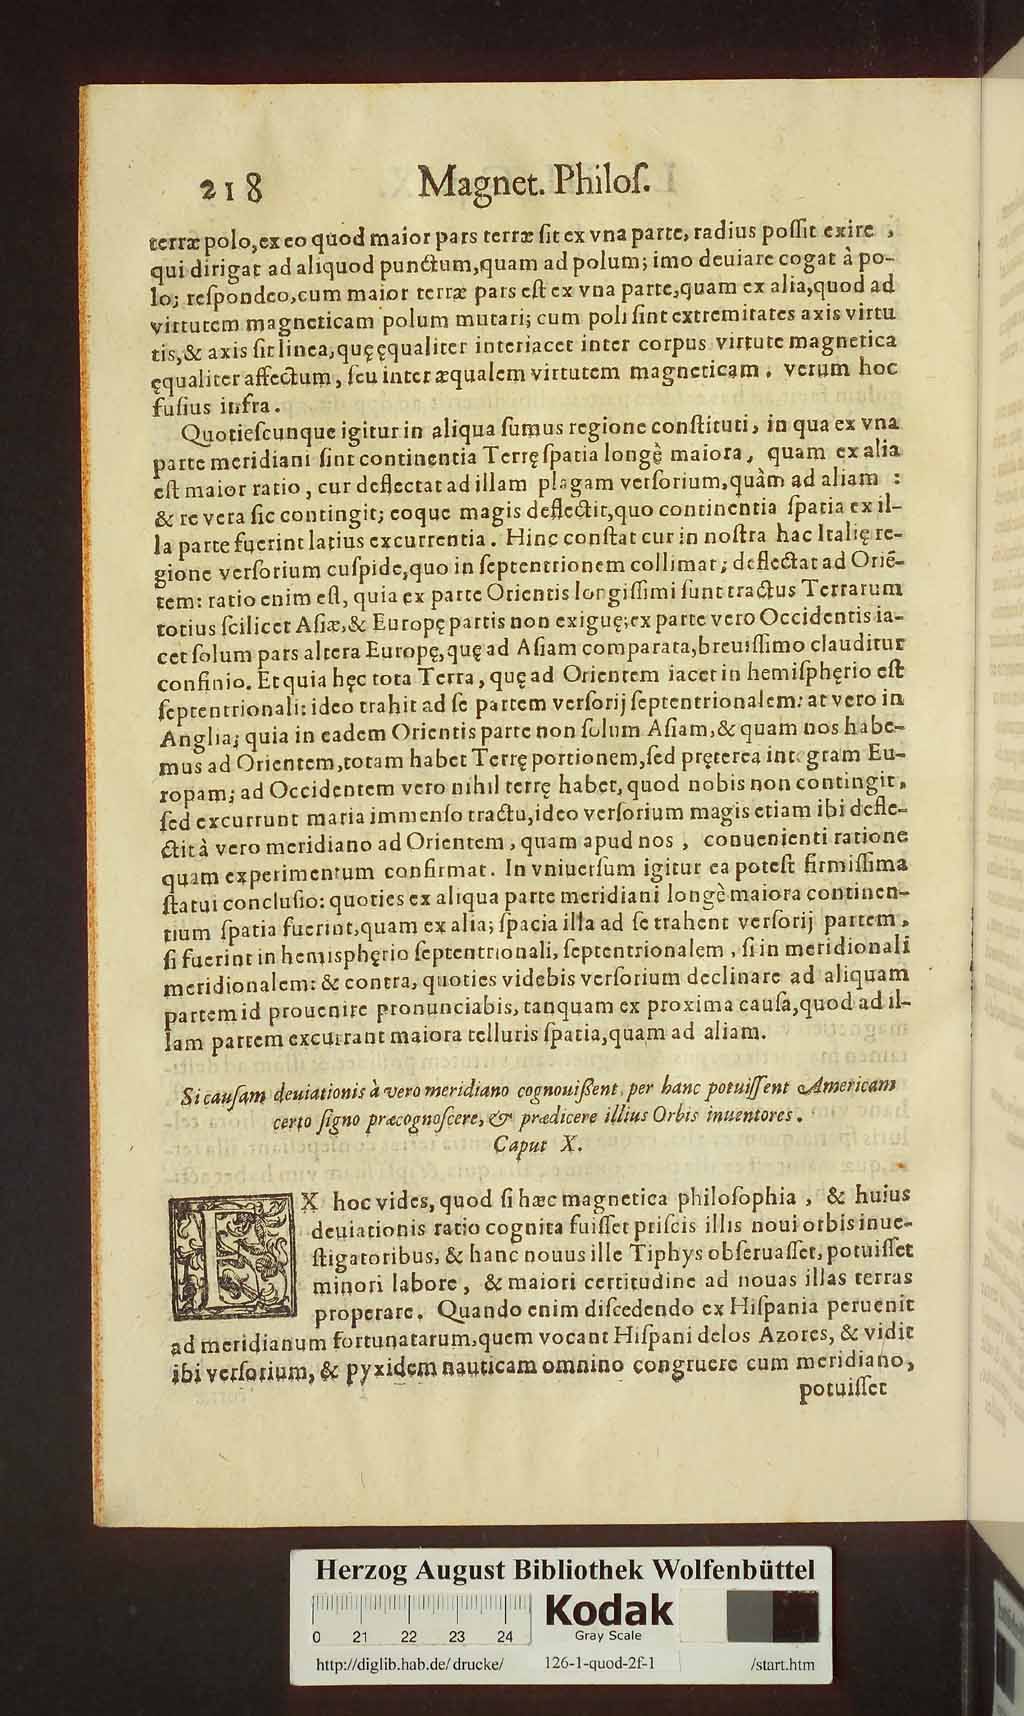 218 Magnet. Philoſ.
terræ polo, ex eo quod maior pars terræ ſit ex vna parte, radius poſſit exire ,
qui dirigat ad aliquod punctum, quam ad polum; imo deuiare cogat à po-
lo; reſpondeo, cum maior terræ pars eſt ex vna parte, quam ex alia, quod ad
virtutem magneticam polum mutari; cum poli ſint extremitates axis virtu
tis, & axis ſit linea, quę ęqualiter interiacet inter corpus virtute magnetica
ęqualiter affectum, ſeu inter æqualem virtutem magneticam. verum hoc
fuſius infra.
Quotieſcunque igitur in aliqua ſumus regione conſtituti, in qua ex vna
parte meridiani ſint continentia Terrę ſpatia longè maiora, quam ex alia
eſt maior ratio, cur deflectat ad illam plagam verſorium, quàm ad aliam :
& re vera ſic contingit; eoque magis deflectit, quo continentia ſpatia ex il-
la parte fuerint latius excurrentia. Hinc conſtat cur in noſtra hac Italię re-
gione verſorium cuſpide, quo in ſeptentrionem collimat; deflectat ad Oriē-
tem: ratio enim eſt, quia ex parte Orientis longiſſimi ſunt tractus Terrarum
totius ſcilicet Aſiæ, & Europę partis non exiguę; ex parte vero Occidentis ia-
cet ſolum pars altera Europę, quę ad Aſiam comparata, breuiſſimo clauditur
confinio. Et quia hęc tota Terra, quę ad Orientem iacet in hemiſphęrio eſt
ſeptentrionali: ideo trahit ad ſe partem verſorij ſeptentrionalem: at vero in
Anglia; quia in eadem Orientis parte non ſolum Aſiam, & quam nos habe-
mus ad Orientem, totam habet Terrę portionem, ſed pręterea integram Eu-
ropam; ad Occidentem vero nihil terrę habet, quod nobis non contingit,
ſed excurrunt maria immenſo tractu, ideo verſorium magis etiam ibi defle-
ctit à vero meridiano ad Orientem, quam apud nos , conuenienti ratione
quam experimentum confirmat. In vniuerſum igitur ea poteſt firmiſſima
ſtatui concluſio: quoties ex aliqua parte meridiani longè maiora continen-
tium ſpatia fuerint, quam ex alia; ſpacia illa ad ſe trahent verſorij partem,
ſi fuerint in hemisphęrio ſeptentrionali, ſeptentrionalem, ſi in meridionali
meridionalem: & contra, quoties videbis verſorium declinare ad aliquam
partem id prouenire pronunciabis, tanquam ex proxima cauſa, quod ad il-
lam partem excurrant maiora telluris ſpatia, quam ad aliam.
Si cauſam deuiationis à vero meridiano cognouiſſent, per hanc potuiſſent Americam
certo ſigno præcognoſcere, & prædicere illius Orbis inuentores.
Caput X.
EX hoc vides, quod ſi hæc magnetica philoſophia , & huius
deuiationis ratio cognita fuiſſet priſcis illis noui orbis inue-
ſtigatoribus, & hanc nouus ille Tiphys obſeruaſſet, potuiſſet
minori labore, & maiori certitudine ad nouas illas terras
properare. Quando enim diſcedendo ex Hiſpania peruenit
ad meridianum fortunatarum, quem vocant Hiſpani delos Azores, & vidit
ibi verſorium, & pyxidem nauticam omnino congruere cum meridiano,
potuiſſet
Herzog August Bibliothek Wolfenbüttel
0 21 22 23 24
Kodak
Gray Scale
http://diglib.hab.de/drucke/ 126-1-quod-2f-1 /start.htm